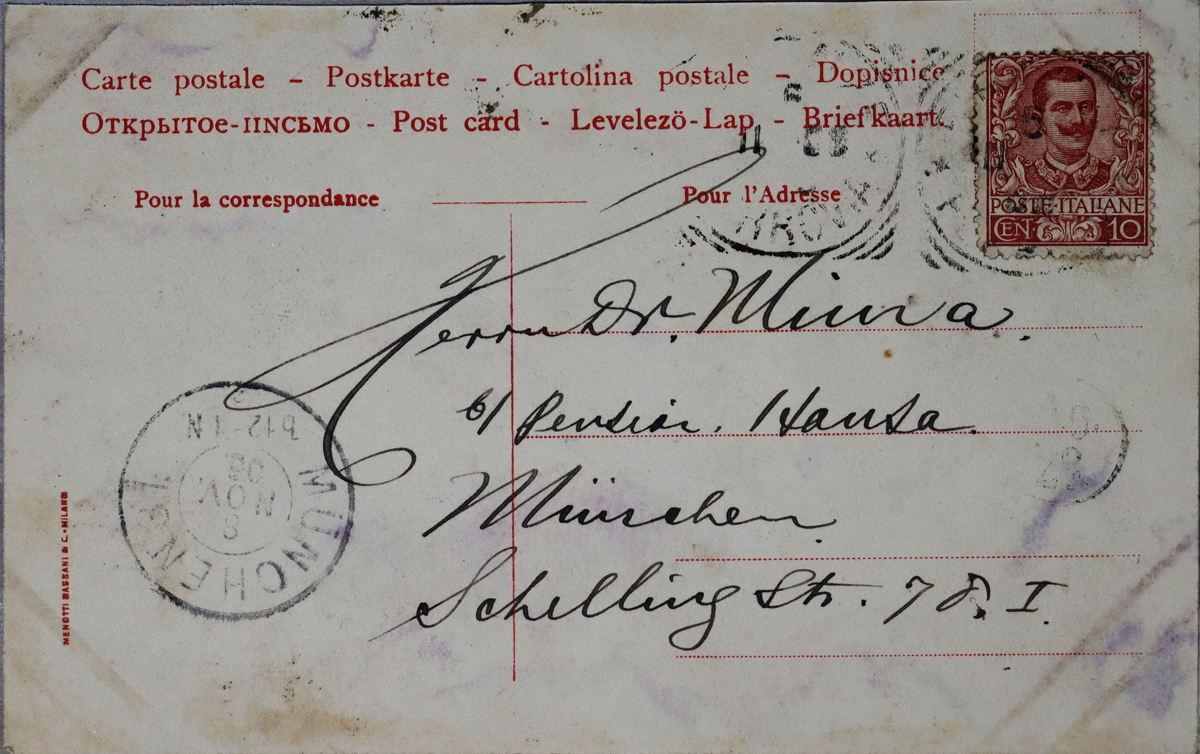 Carte postale – Postkarte – Cartolina postale – Dopisnice
Открытое-письмо - Post card - Levelezö-Lap - Briefkaart.
Pour la correspondance
Pour l'Adresse
POSTE·ITALIANE
CEN· 10
Herrn Dr. Miura.
b/ Pension. Hansa.
München
Schelling Str. 78. I.
MÜNCHEN 31.
8
NOV
03
12-1 N
MENOTTI BASSANI & C. - MILANO